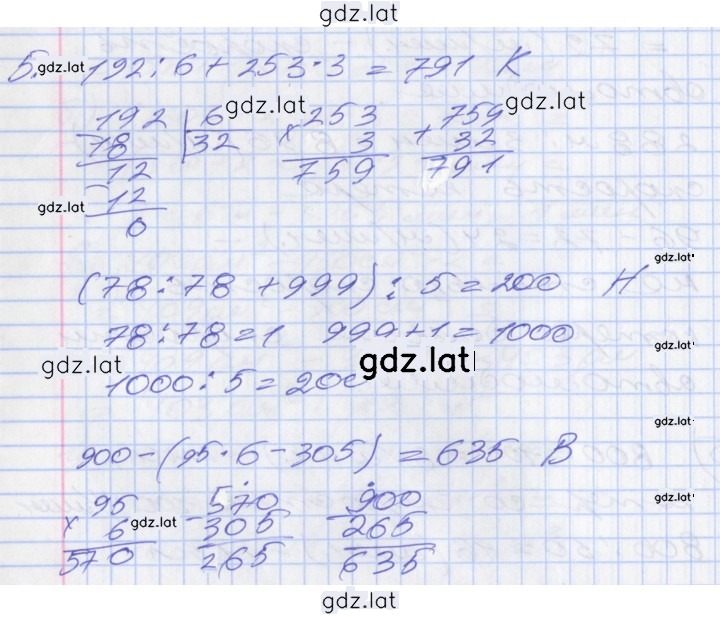 gdz.lat
5. gdz.lat 192 : 6 + 253 · 3 = 791 К
192 | 6 gdz.lat × 253 + 759 gdz.lat
- 18 32 3 32
12 759 791
gdz.lat - 12
0
gdz.lat
(78 : 78 + 999) : 5 = 200 Н
78 : 78 = 1 999 + 1 = 1000 gdz.lat
gdz.lat 1000 : 5 = 200 gdz.lat
gdz.lat
900 - (95 · 6 - 305) = 635 В
95 - 570 - 900 gdz.lat
× 6 gdz.lat 305 265
570 265 635
gdz.lat